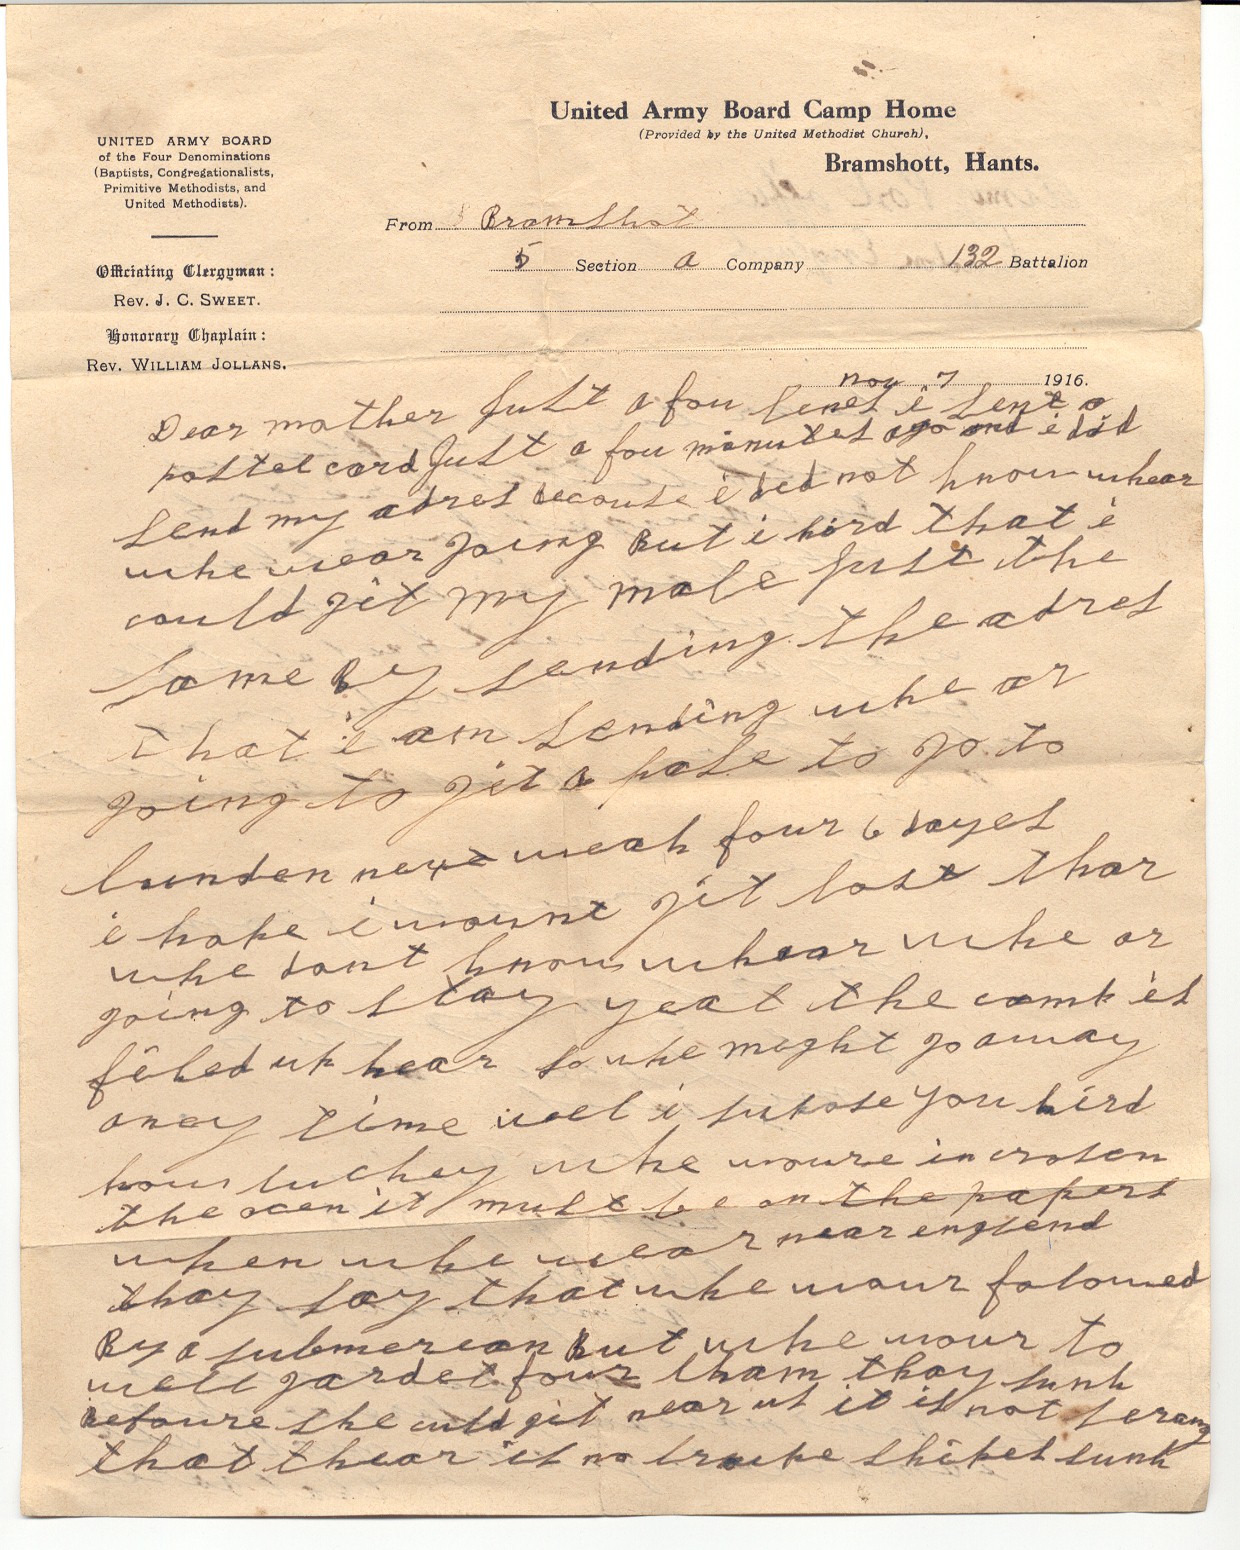 United Army Board Camp Home
(Provided by the United Methodist Church),
Bramshott, Hants.
UNITED ARMY BOARD
of the Four Denominations
(Baptists, Congregationalists,
Primitive Methodists, and
United Methodists).
Officiating Clergyman:
Rev. J. C. SWEET.
Honorary Chaplain:
Rev. WILLIAM JOLLANS.
From Bramshot
5 Section a Company 132 Battalion
nov 7 1916.
Dear mother Just a fou lines i sent a
postel card Just a fou minutes ago and i did
send my adres because i did not know whear
whe wear going But i hird that i
could git my male Just the
same By sending the adres
that i am sending whe ar
going to git a pase to go to
lunden next weak four 6 dayes
i hope i wount git lost thar
whe dont know whear whe ar
going to stay yeat the camp is
filed up hear so whe might go away
aney time well i supose you hird
how luckey whe woure in crosen
the ocen it must be on the papers
when whe wear near englend
thay say that whe wour folowed
By a submerean But whe wour to
well gardet four tham thay sunk
Befoure she culd git near us it is not
that thear is no shipes sunk